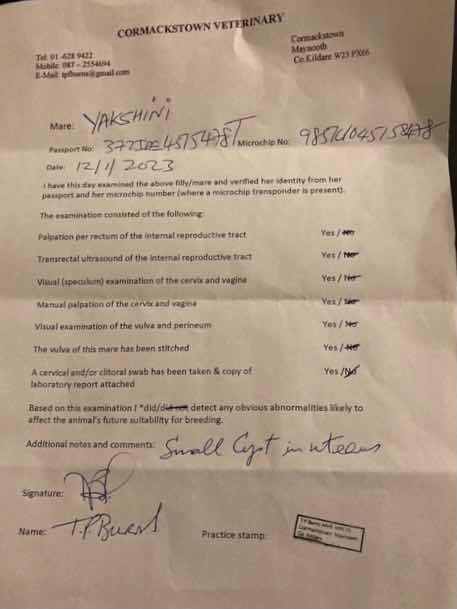 CORMACKSTOWN VETERINARY
Tel: 01 -628 9422
Mobile: 087 – 2554694
E-Mail: tpfburns@gmail.com
Cormackstown
Maynooth
Co.Kildare W23 PX66
Mare: YAKSHINI
Passport No: Microchip No:
Date: 12/1/2023
I have this day examined the above filly/mare and verified her identity from her
passport and her microchip number (where a microchip transponder is present).
The examination consisted of the following:
Palpation per rectum of the internal reproductive tract Yes / No
Transrectal ultrasound of the internal reproductive tract Yes / No
Visual (speculum) examination of the cervix and vagina Yes / No
Manual palpation of the cervix and vagina Yes / No
Visual examination of the vulva and perineum Yes / No
The vulva of this mare has been stitched Yes / No
A cervical and/or clitoral swab has been taken & copy of Yes /No
laboratory report attached
Based on this examination I *did/did not detect any obvious abnormalities likely to
affect the animal's future suitability for breeding.
Additional notes and comments: Small Cyst in uterus
Signature:
Name: T.P.Burns
Practice stamp: